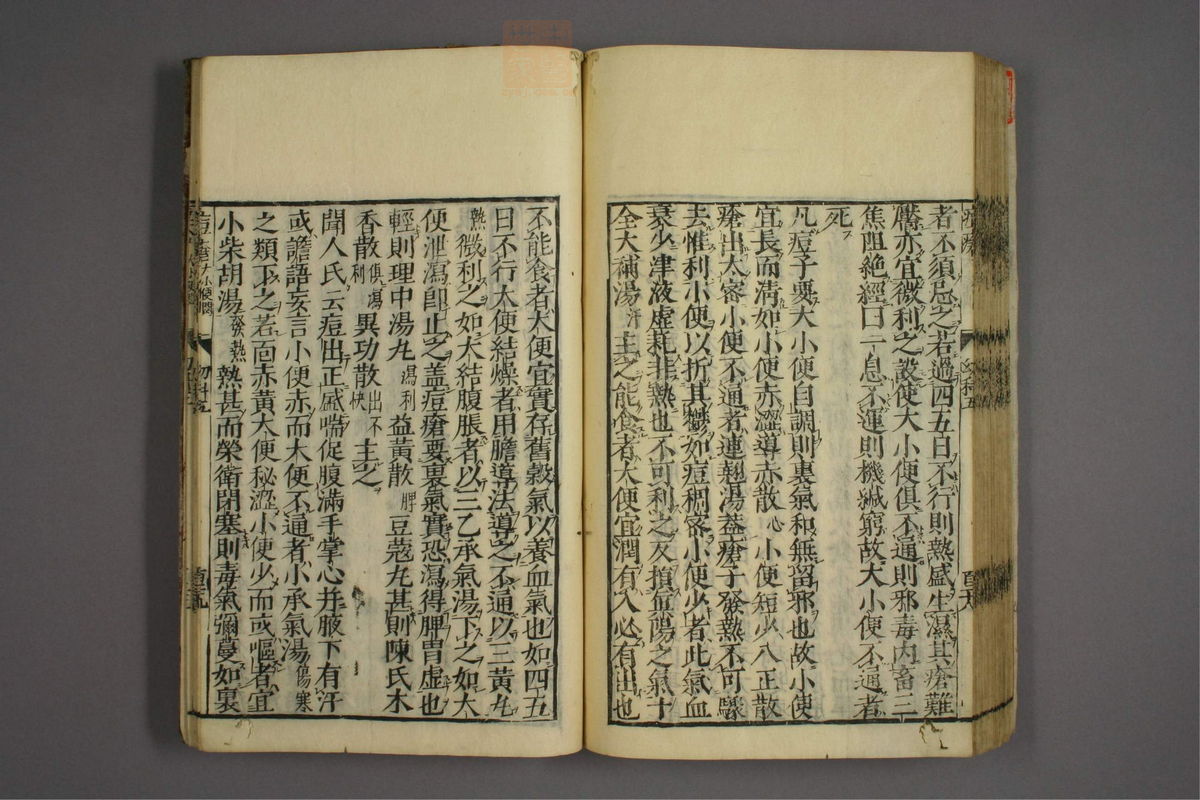 者不須忌之若過四五日不行則熱盛生濕其瘡難
靨亦宜微利之設使大小便俱不通則邪毒內畜三
焦阻絕經曰一息不運則機緘窮故大小便不通者
死
凡痘子要大小便自調則裏氣和無留邪也故小便
宜長而清如小便赤澀導赤散心小便短少八正散
瘡出太密小便不通者連翹湯蓋瘡子發熱不可驟
去惟利小便以折其鬱如痘稠密小便少者此氣血
衰少津液虛耗非熱也不可利之反損氣陽之氣十
全大補湯汗主之能食者大便宜潤有入必有出也
不能食者大便宜實存舊穀氣以養血氣也如四五
日不行大便結燥者用膽導法導之不通以三黃丸
熱微利之如大結腹脹者以三乙承氣湯下之如大
便泄瀉即止之蓋痘瘡要裏氣實恐瀉得脾胃虛也
輕則理中湯丸瀉利益黃散脾豆蔻丸甚則陳氏木
香散俱瀉利異功散出不快主之
聞人氏云痘出正盛喘促腹滿手掌心并腋下有汗
或譫語妄言小便赤而大便不通者小承氣湯傷寒
之類下之若面赤黃大便秘澀小便少而或嘔者宜
小柴胡湯發熱熱甚而榮衛閉塞則毒氣彌蔓如裏
幼科五